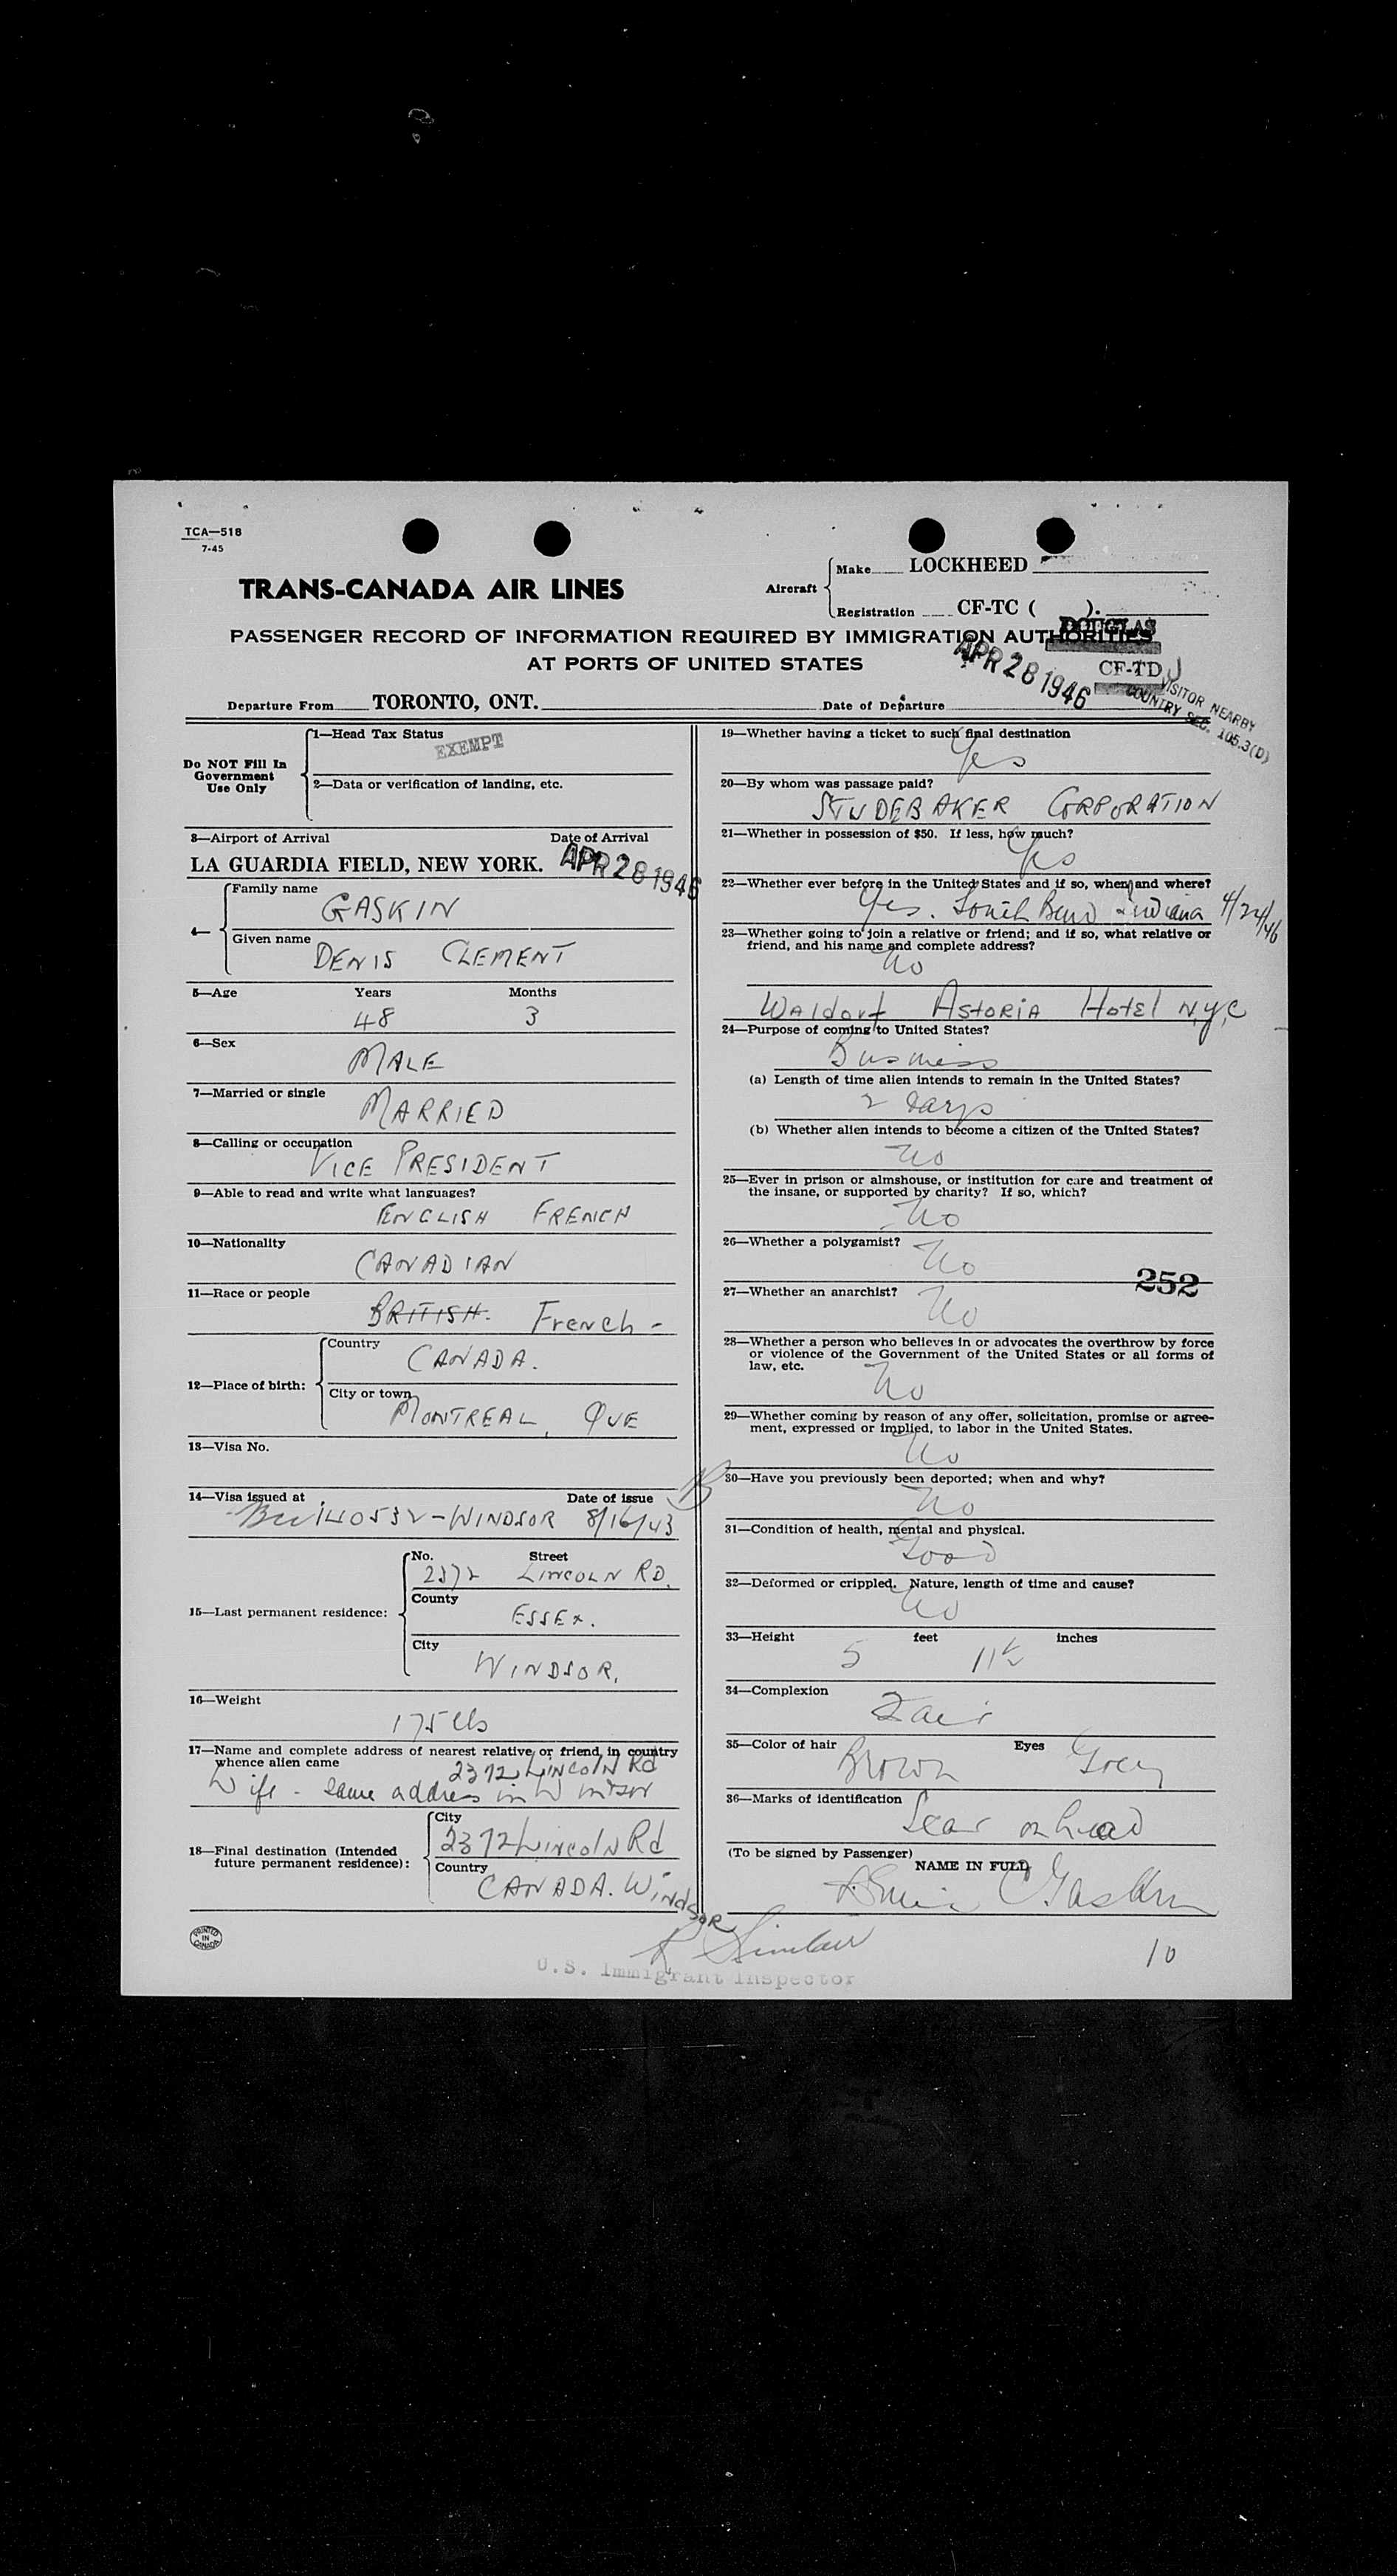 TCA—518
7-45
TRANS-CANADA AIR LINES
Aircraft
Make LOCKHEED
Registration CF-TC ( ).
DOUGLAS
CF-TD J
PASSENGER RECORD OF INFORMATION REQUIRED BY IMMIGRATION AUTHORITIES
AT PORTS OF UNITED STATES
APR 28 1946
VISITOR NEARBY
COUNTRY SEC. 105.3(D)
Departure From TORONTO, ONT. Date of Departure
Do NOT Fill In
Government
Use Only
1—Head Tax Status
EXEMPT
2—Data or verification of landing, etc.
3—Airport of Arrival Date of Arrival
LA GUARDIA FIELD, NEW YORK. APR 28 1946
4—
Family name
GASKIN
Given name
DENIS CLEMENT
5—Age Years Months
48 3
6—Sex
MALE
7—Married or single
MARRIED
8—Calling or occupation
VICE PRESIDENT
9—Able to read and write what languages?
ENGLISH FRENCH
10—Nationality
CANADIAN
11—Race or people
BRITISH. French -
12—Place of birth:
Country
CANADA.
City or town
MONTREAL, QUE
13—Visa No.
14—Visa issued at Date of issue
140532 - WINDSOR 8/16/43
15—Last permanent residence:
No. Street
2372 LINCOLN RD.
County
ESSEX.
City
WINDSOR.
16—Weight
175 lbs
17—Name and complete address of nearest relative or friend in country
whence alien came
2372 LINCOLN Rd
Wife - same address in Windsor
18—Final destination (Intended
future permanent residence):
City
2372 LINCOLN Rd
Country
CANADA. WINDSOR
PRINTED
IN
CANADA
19—Whether having a ticket to such final destination
Yes
20—By whom was passage paid?
STUDEBAKER CORPORATION
21—Whether in possession of $50. If less, how much?
Yes
22—Whether ever before in the United States and if so, when and where?
Yes. South Bend Indiana 4/24/46
23—Whether going to join a relative or friend; and if so, what relative or
friend, and his name and complete address?
No
Waldorf ASTORIA Hotel N.Y.C
24—Purpose of coming to United States?
Business
(a) Length of time alien intends to remain in the United States?
2 days
(b) Whether alien intends to become a citizen of the United States?
No
25—Ever in prison or almshouse, or institution for care and treatment of
the insane, or supported by charity? If so, which?
No
26—Whether a polygamist?
No
252
27—Whether an anarchist?
No
28—Whether a person who believes in or advocates the overthrow by force
or violence of the Government of the United States or all forms of
law, etc.
No
29—Whether coming by reason of any offer, solicitation, promise or agree-
ment, expressed or implied, to labor in the United States.
No
30—Have you previously been deported; when and why?
No
31—Condition of health, mental and physical.
Good
32—Deformed or crippled. Nature, length of time and cause?
No
33—Height feet inches
5 11½
34—Complexion
Fair
35—Color of hair Eyes
Brown Grey
36—Marks of identification
Scar on head
(To be signed by Passenger)
NAME IN FULL
Denis C Gaskin
R Sinclair
U.S. Immigrant Inspector
10